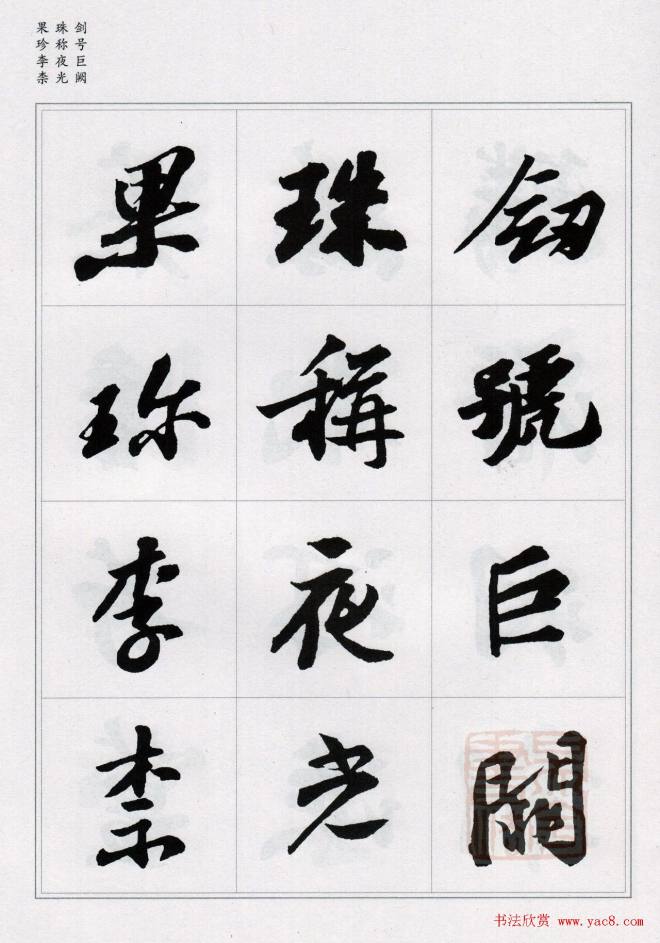 剑号巨阙
珠称夜光
果珍李柰
釼號巨闕
珠稱夜光
果珎李柰
书法欣赏 www.yac8.com